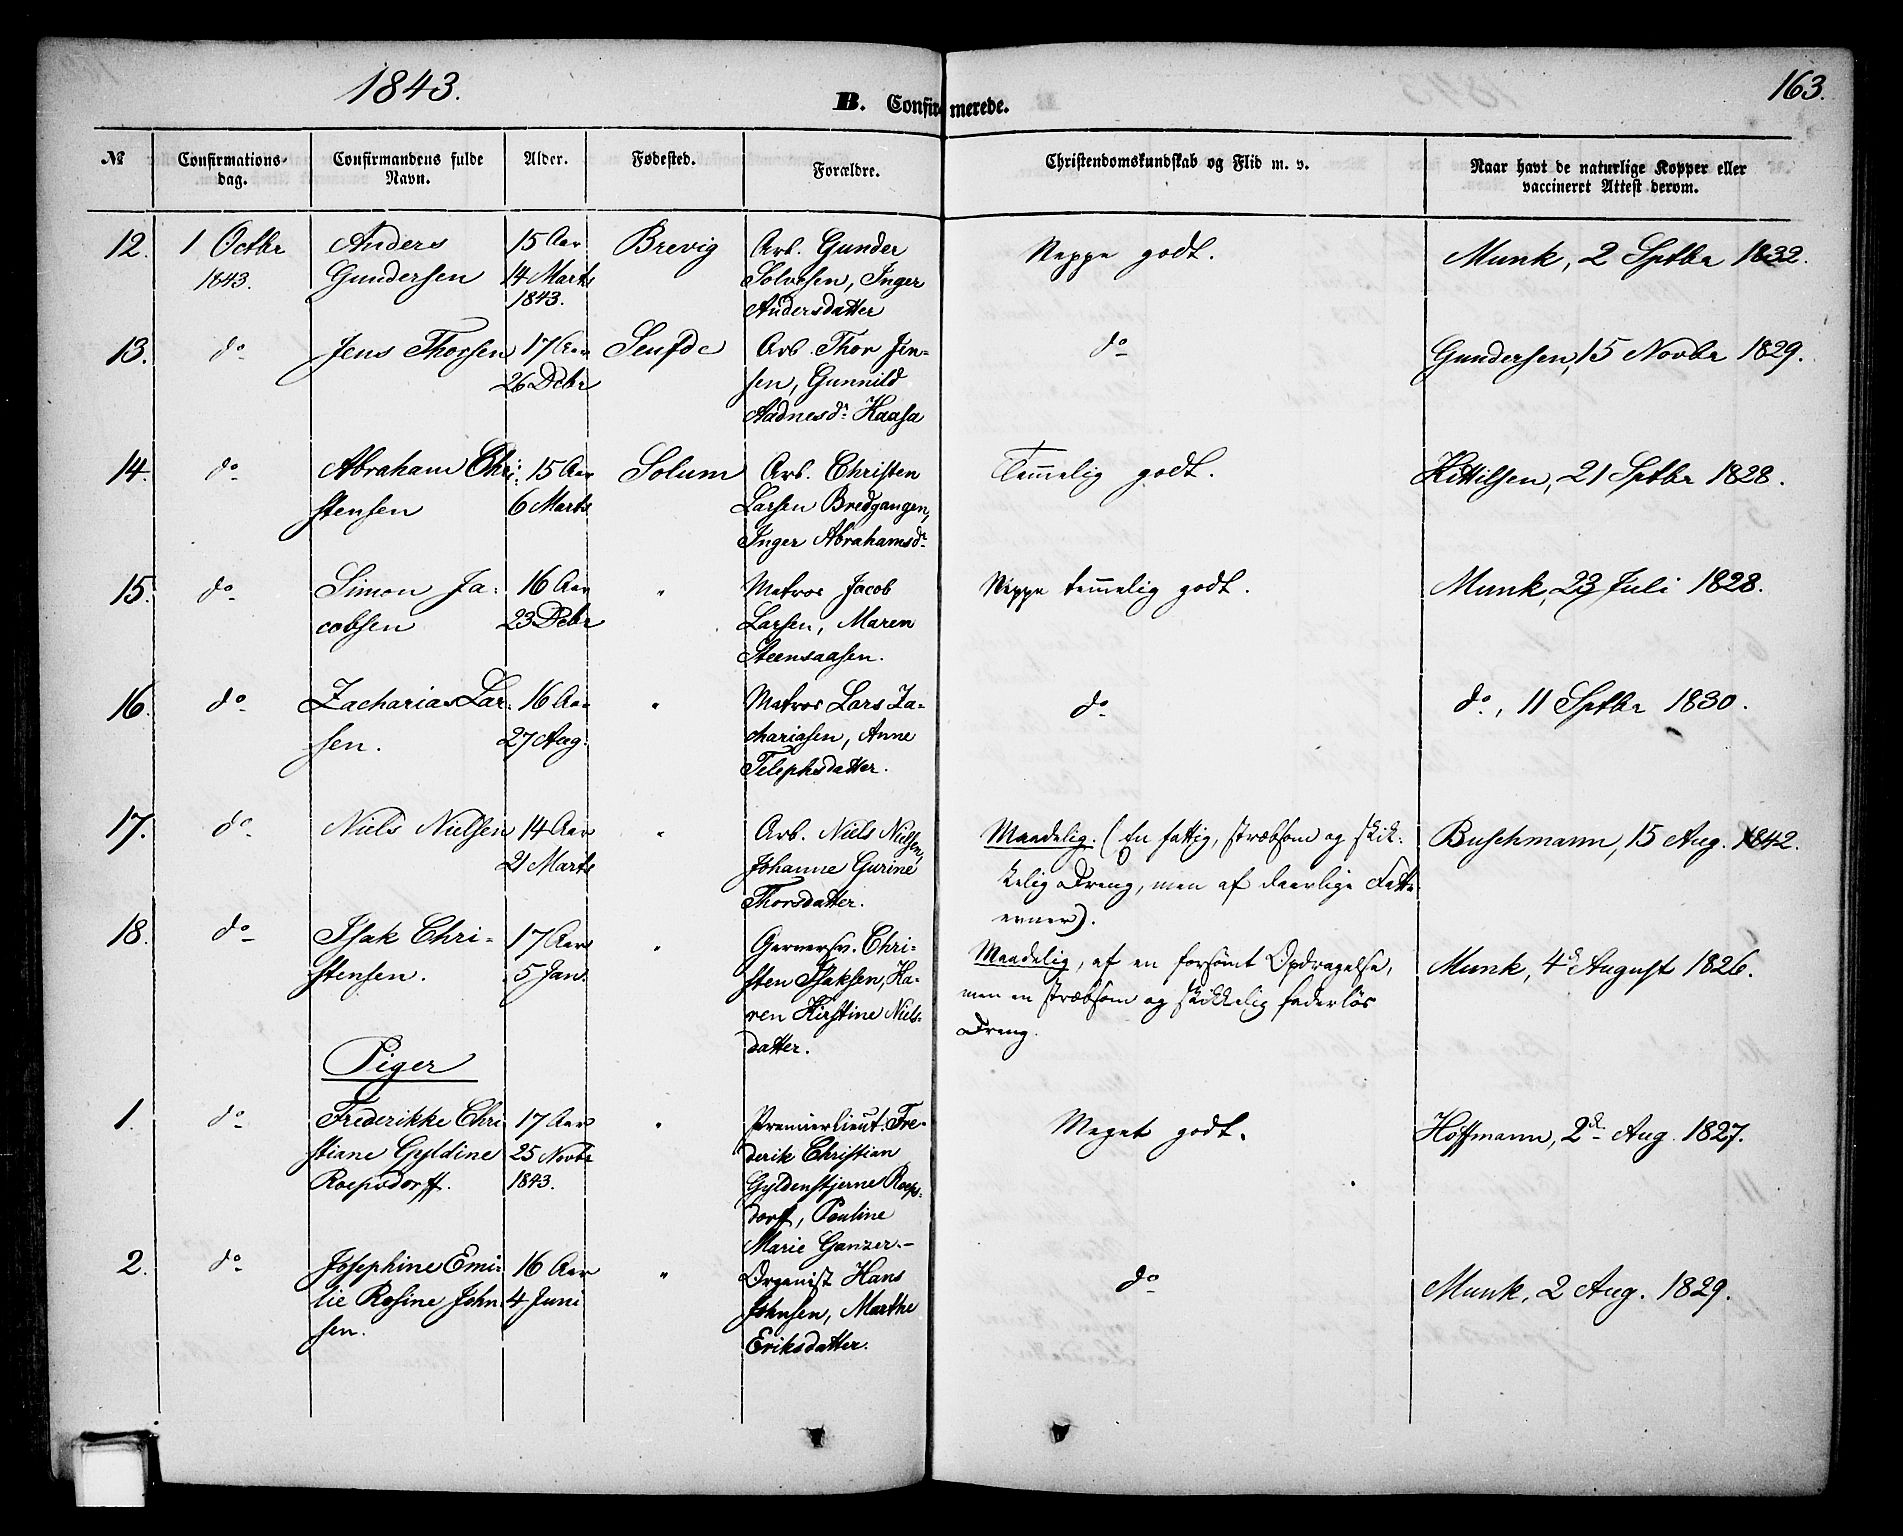 1843.
B. Confirmerede.
163.
№
Confirmations-
dag.
Confirmandens fulde
Navn.
Alder.
Fødested.
Forældre.
Christendomskundskab og Flid m. v.
Naar havt de naturlige Kopper eller
vaccineret Attest derom.
12. 1 Octbr Anders 15 Aar Brevig Arb. Gunder Neppe godt. Munk, 2 Sptbr 1832.
1843. Gundersen 14 Marts Solvesen, Inger
1843. Andersdatter
13. do Jens Thorsen 17 Aar Arb. Thor Jen- do Gundersen, 15 Novbr 1829.
26 Debr sen, Gunnild
Aadnesdr Haasa
14. do Abraham Chri- 15 Aar Solum Arb. Christen Temmelig godt. Kittilsen, 21 Sptbr 1828.
stensen 6 Marts Larsen Bredgangen,
Inger Abrahamsdr
15. do Simon Ja- 16 Aar " Matros Jacob Neppe temmelig godt. Munk, 23 Juli 1828.
cobsen 23 Debr Larsen, Maren
Steensaasen.
16. do Zacharias Lar- 16 Aar " Matros Lars Za- do do, 11 Sptbr 1830.
sen. 27 Aug. chariasen, Anne
Telephsdatter.
17. do Niels Nielsen 14 Aar " Arb. Niels Nielsen, Maadelig. (En fattig, stræbsom og skik- Buschmann, 15 Aug. 1842.
21 Marts Johanne Gurine kelig Dreng, men af daarlige Fatte
Thorsdatter. evner).
18. do Isak Chri- 17 Aar " Garversv. Chri- Maadelig, af en forsømt Opdragelse, Munk, 4de August 1826.
stensen. 5 Jan. sten Isaksen, Ka- men en stræbsom og skikkelig faderløs
ren Kirstine Niels- Dreng.
datter.
Piger
1. do Frederikke Chri 17 Aar " Premierlieut. Fre- Meget godt. Hoffmann, 2de Aug. 1827.
stiane Gyldine 25 Novbr derik Christian
Roepsdorff. 1843. Gyldenstjerne Roeps-
dorff, Pauline
Marie Ganzer.-
2. do Josephine Emi- 16 Aar " Organist Hans do Munk, 2 Aug. 1829.
lie Rosine John 4 Juni Johnsen, Marthe
sen. Eriksdatter.